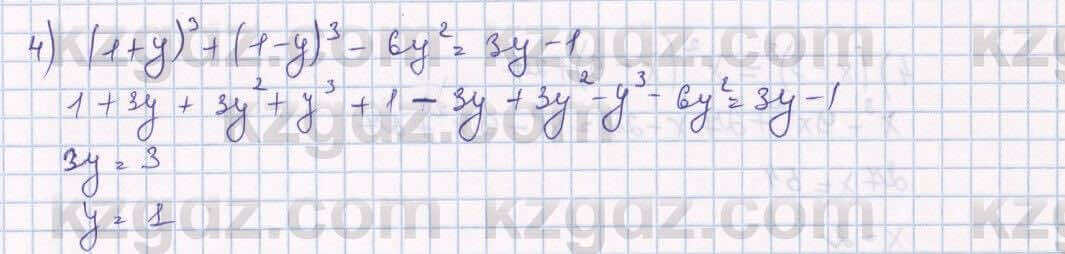 4) (1+y)³+(1-y)³-6y²=3y-1
1+3y+3y²+y³+1-3y+3y²-y³-6y²=3y-1
3y=3
y=1
kzgdz.com kzgdz.com kz
kzgdz.com
kzgdz.com kzgdz.com kz